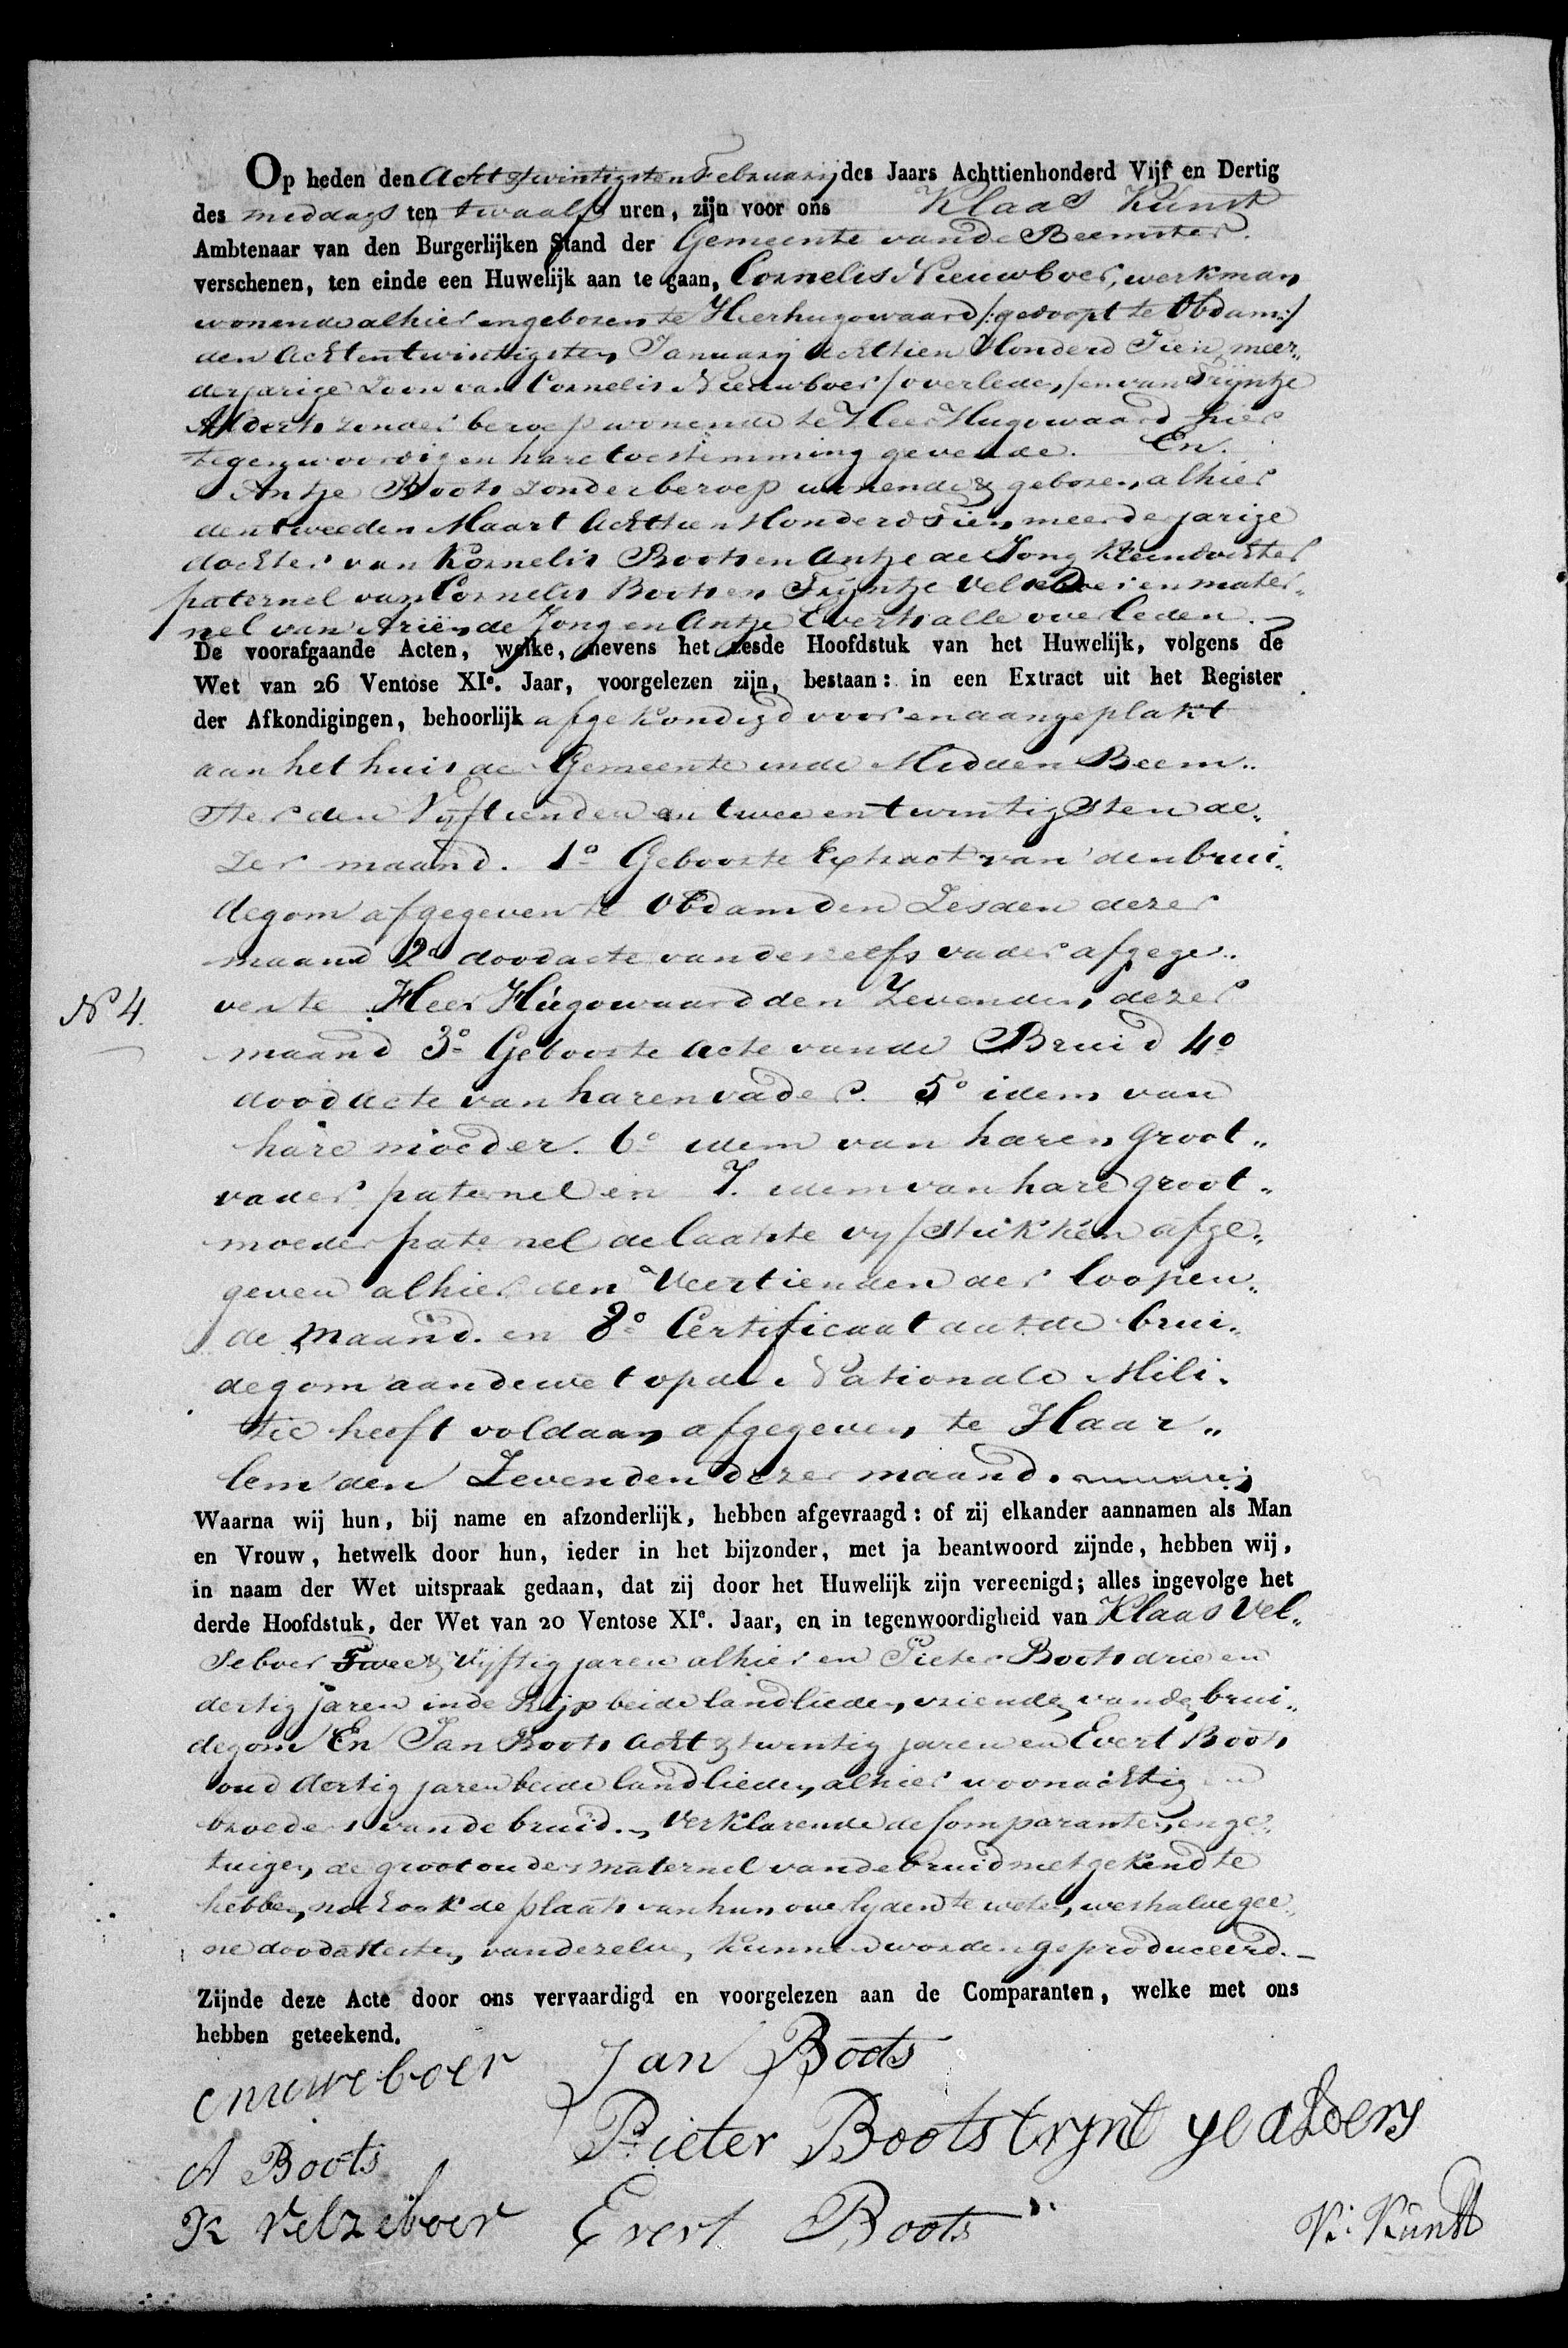 Op heden den Acht & twintigsten Februarij des Jaars Achttienhonderd Vijf en Dertig
des middags ten twaalf uren, zijn voor ons Klaas Kunst
Ambtenaar van den Burgerlijken Stand der Gemeente van de Beemster.
verschenen, ten einde een Huwelijk aan te gaan, Cornelis Nieuwboer, werkman
wonende alhier en geboren te Heerhugowaard /:gedoopt te Obdam:/
den Achtentwintigsten Januarij Achttien Honderd Tien, meer„
derjarige Zoon van Cornelis Nieuwboer /overleden/ en van Trijntje
Alderts zonder beroep wonende te Heer Hugowaard hier
tegenwoordig en hare toestemming gevende. En.
Antje Boots zonder beroep wonende & geboren alhier
den tweeden Maart Achttien Honderd Tien, meerderjarige
dochter van Kornelis Boots en Antje de Jong Kleindochter
paternel van Cornelis Boots en Trijntje Velseboer en mater„
nel van Ariën de Jong en Antje Everts alle overleden.
De voorafgaande Acten, welke, nevens het zesde Hoofdstuk van het Huwelijk, volgens de
Wet van 26 Ventose XIe. Jaar, voorgelezen zijn, bestaan: in een Extract uit het Register
der Afkondigingen, behoorlijk afgekondigd voor en aangeplakt
aan het huis der Gemeente in de Midden Beem„
ster den Vijftienden en twee en twintigsten de„
zer maand. 1o Geboorte Extract van den brui„
degom afgegeven te Obdam den Zesden dezer
maand 2o doodacte van deszelfs vader afgege„
ven te Heer Hugowaard den Zevenden dezer
No 4.
maand 3o Geboorte Acte van de Bruid 4o
doodacte van haren vader. 5o idem van
hare moeder. 6o idem van haren groot„
vader paternel en 7. idem van hare groot„
moeder paternel de laatste vyf stukken afge„
geven alhier den Veertienden der loopen„
de maand. en 8o Certificaat dat de brui„
degom aan de wet op de Nationale Mili„
tie heeft voldaan afgegeven te Haar„
lem den Zevenden dezer maand.
Waarna wij hun, bij name en afzonderlijk, hebben afgevraagd: of zij elkander aannamen als Man
en Vrouw, hetwelk door hun, ieder in het bijzonder, met ja beantwoord zijnde, hebben wij,
in naam der Wet uitspraak gedaan, dat zij door het Huwelijk zijn vereenigd; alles ingevolge het
derde Hoofdstuk, der Wet van 20 Ventose XIe. Jaar, en in tegenwoordigheid van Klaas Vel„
seboer Twee & Vijftig jaren alhier en Pieter Boots drie en
dertig jaren in de Rijp beide landlieden, vrienden van de brui„
degom En Jan Boots Acht & twintig jaren en Evert Boots
oud dertig jaren beide landlieden, alhier woonachtig
broeders van de bruid. Verklarende de Comparanten, en ge„
tuigen, de grootouders maternel van de bruid niet gekend te
hebben, noch ook de plaats van hun overlyden te weten, weshalve gee„
ne doodattesten, van dezelve, kunnen worden geproduceerd.
Zijnde deze Acte door ons vervaardigd en voorgelezen aan de Comparanten, welke met ons
hebben geteekend.
C nuweboer
Jan Boots
Pieter Boots
trynt ye alders
A Boots
K Velzeboer
Evert Boots
K: Kunst